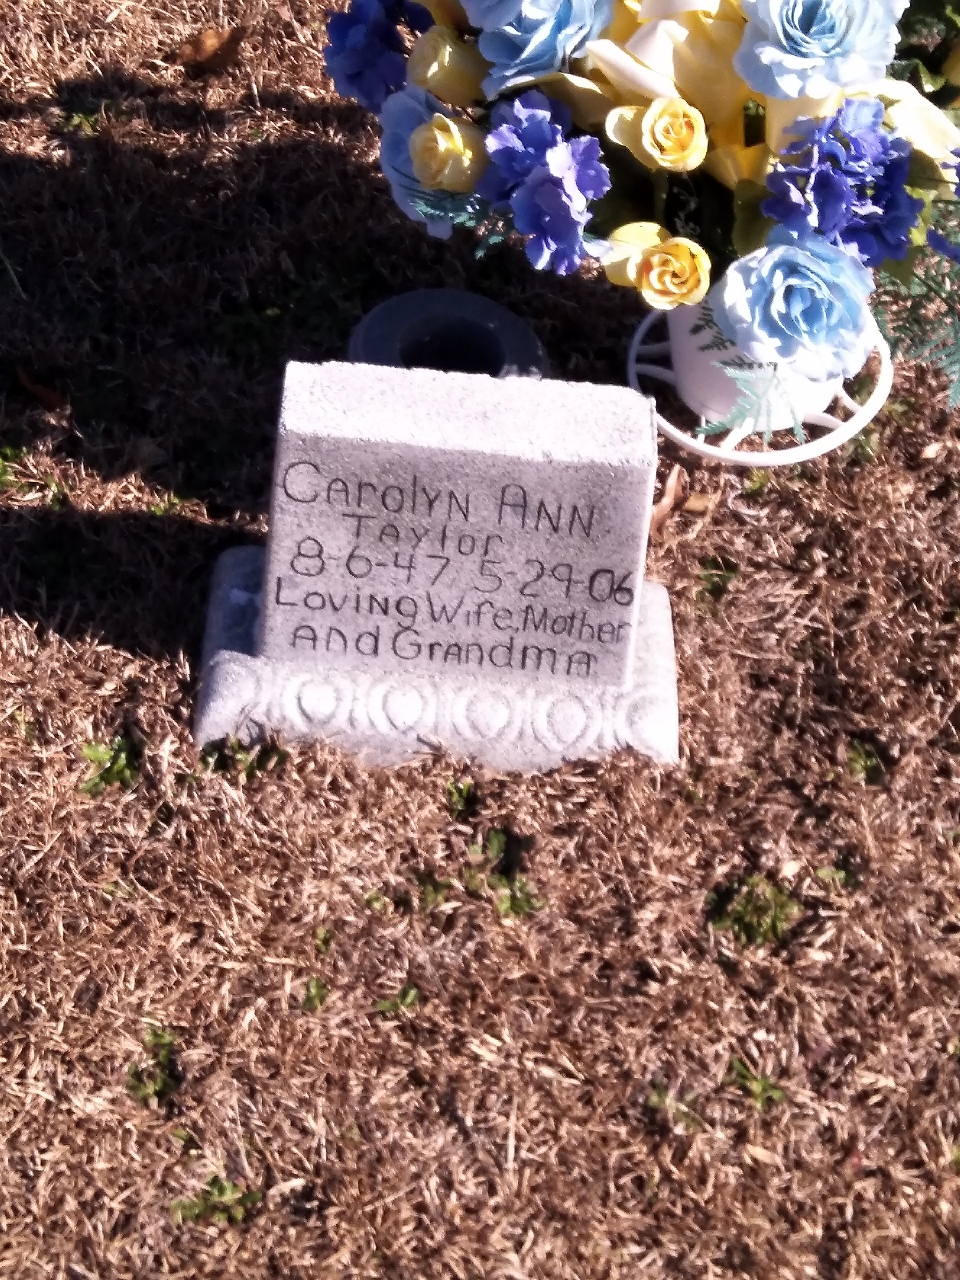 Carolyn Ann
Taylor
8-6-47 5-29-06
Loving Wife, Mother
and Grandma